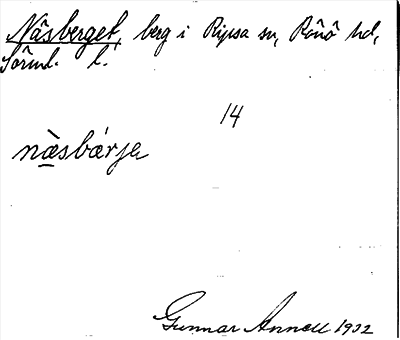 Näsberget, berg i Ripsa sn, Rönö hd,
Sörml. l.
14
næ̀sbæŕja
Gunnar Annell 1932